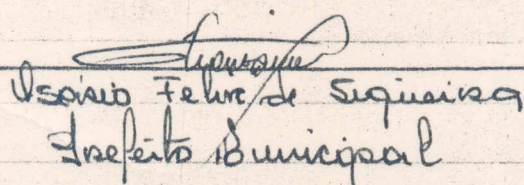 Isaísio Felix de Siqueira
Prefeito Municipal